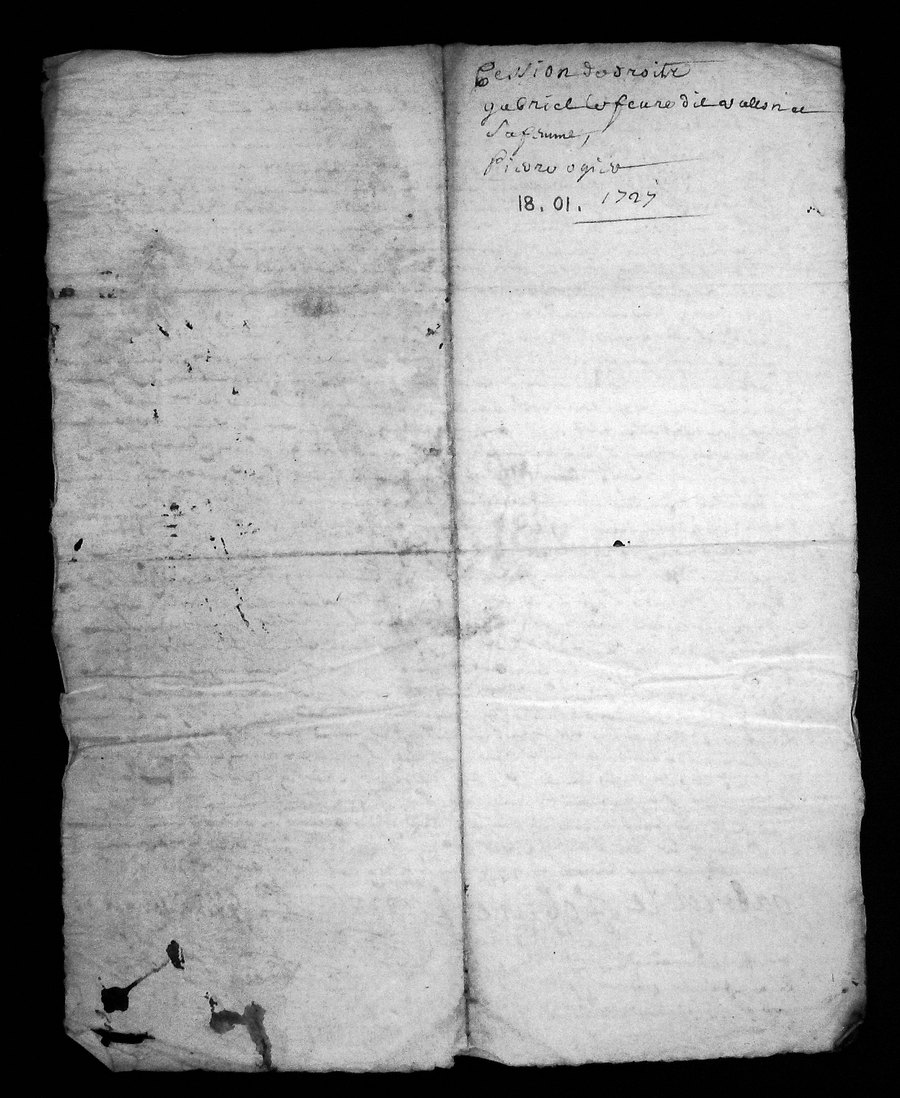 Cession de droits
gabriel lefeure dit et
Sa femme,
Pierre ogier
18. 01. 1727